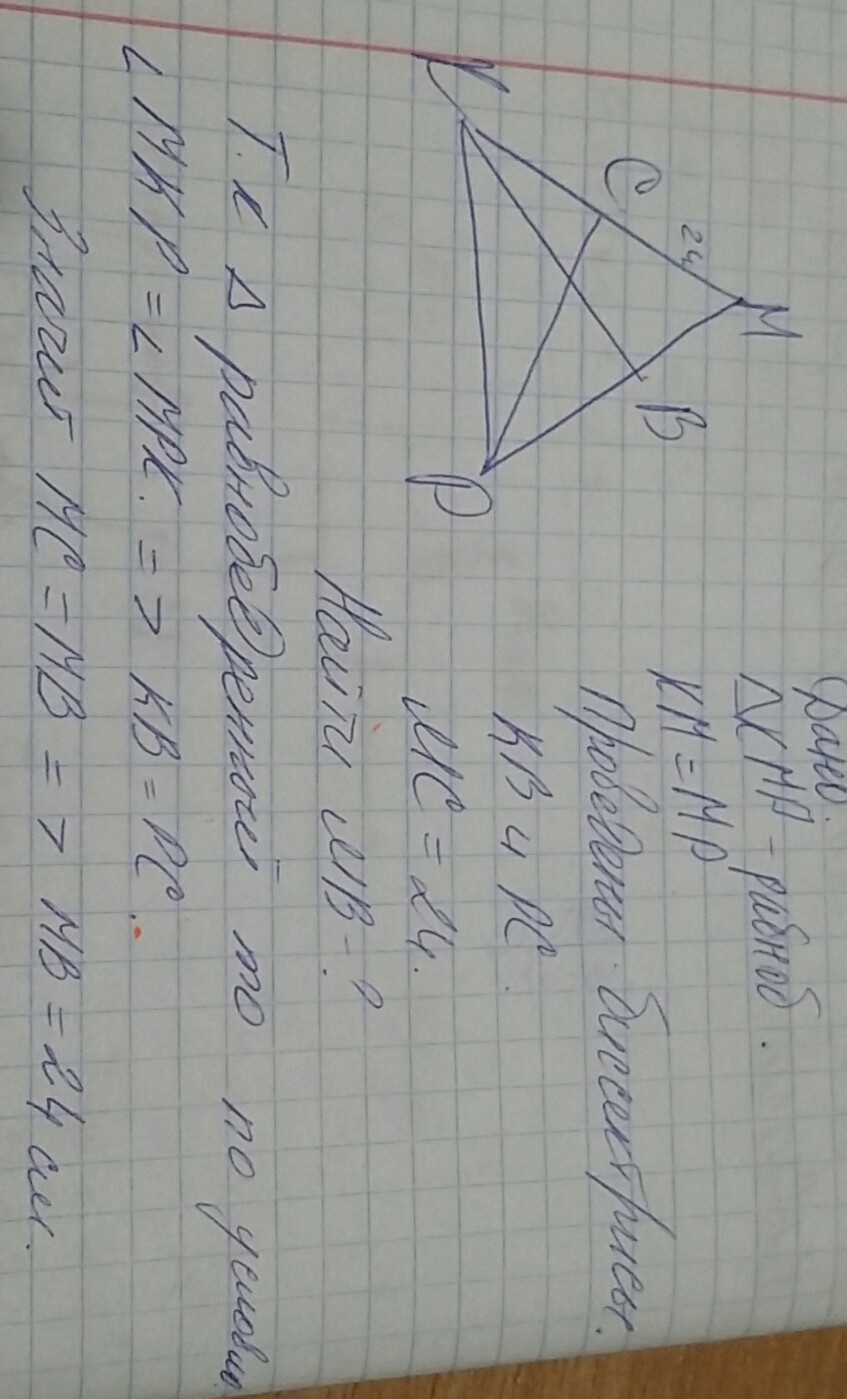 Дано:
ΔKMP - равноб.
KM = MP
Проведены биссектрисы.
KB и PC.
MC = 24.
Найти MB - ?
K
C
24
M
B
P
Т.к Δ равнобедренный то по условию
∠ MKP = ∠ MPK. => KB = PC.
Значит MC = MB => MB = 24 см.